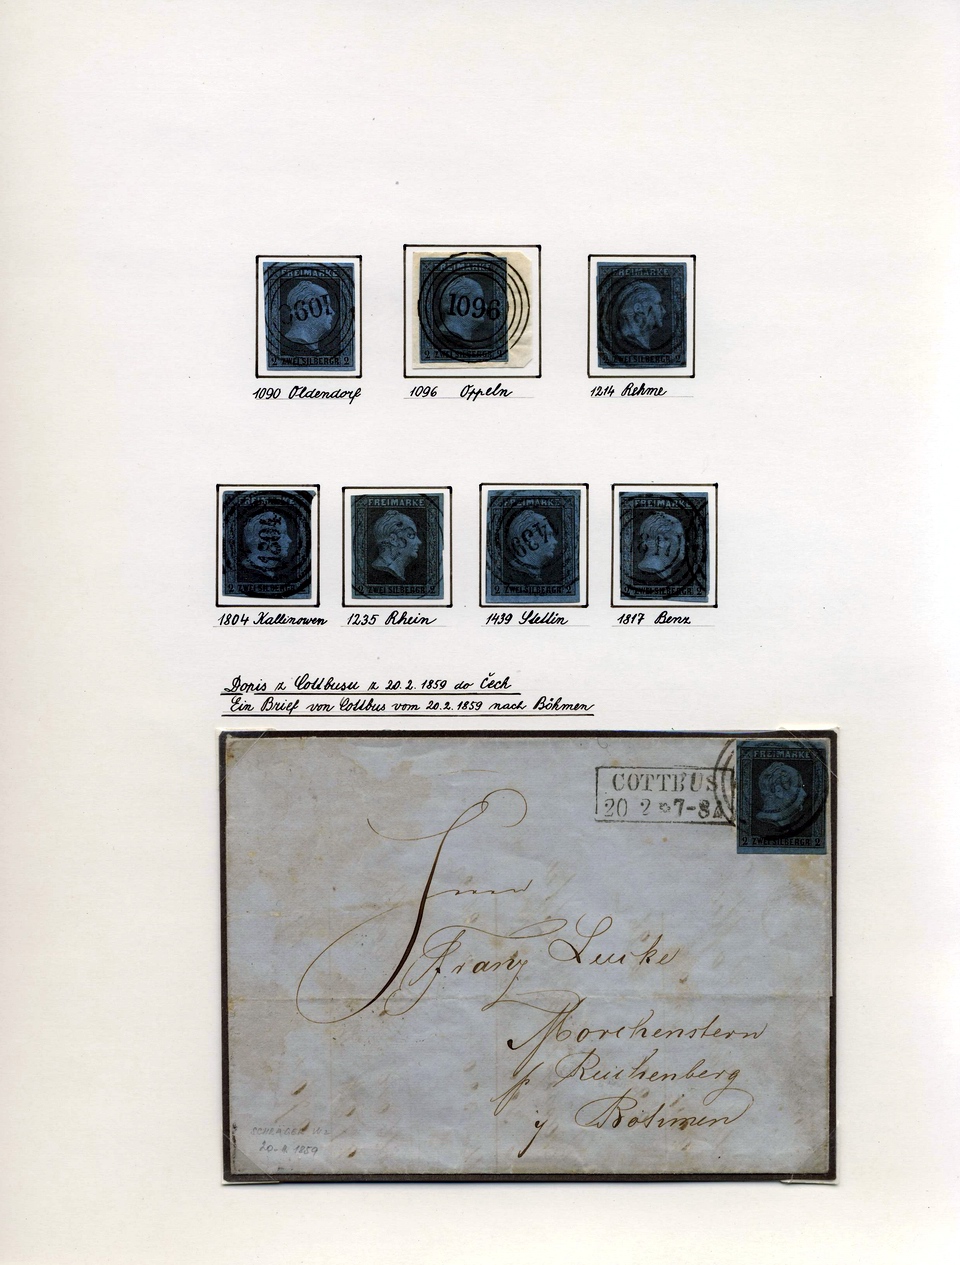 FREIMARKE
1090
2 ZWEI SILBERGR. 2
FREIMARKE
1096
2 ZWEI SILBERGR. 2
FREIMARKE
ZWEI SILBERGR.
1090 Oldendorf
1096 Oppeln
1214 Rehme
FREIMARKE
1804
2 ZWEI SILBERGR. 2
FREIMARKE
2 ZWEI SILBERGR. 2
FREIMARKE
1439
2 ZWEI SILBERGR. 2
FREIMARKE
1817
2 ZWEI SILBERGR. 2
1804 Kallinowen
1235 Rhein
1439 Stettin
1817 Benz
Dopis z Cottbusu z 20.2.1859 do Čech
Ein Brief von Cottbus vom 20.2.1859 nach Böhmen
FREIMARKE
2 ZWEI SILBERGR. 2
COTTBUS
20 2 * 7-8
Franz Lucke
Morchenstern
p Reichenberg
Böhmen
1859